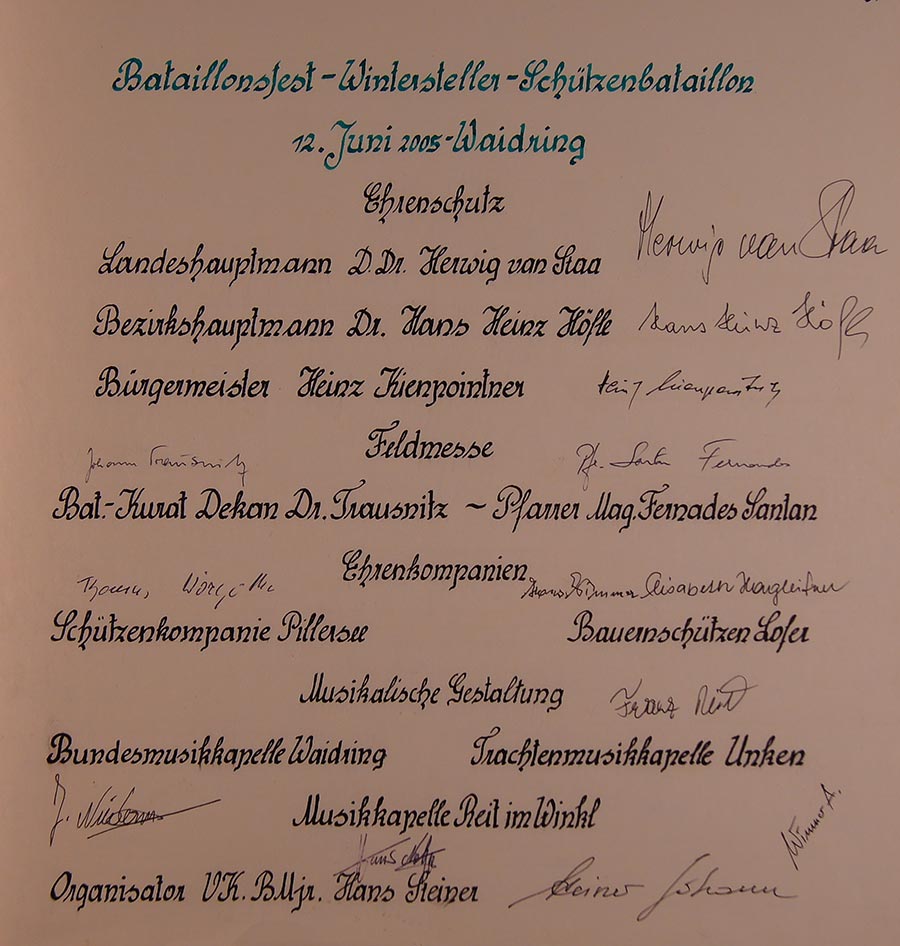 Bataillonsfest-Wintersteller-Schützenbataillon
12. Juni 2005-Waidring
Ehrenschutz
Landeshauptmann D.Dr. Herwig van Staa Herwig van Staa
Bezirkshauptmann Dr. Hans Heinz Höfle Hans Heinz Höfle
Bürgermeister Heinz Kienpointner Heinz Kienpointner
Feldmesse
Johann Trausnitz Pfr. Santan Fernandes
Bat.-Kurat Dekan Dr. Trausnitz ~ Pfarrer Mag. Fernades Santan
Ehrenkompanien
Elisabeth Hagleitner
Schützenkompanie Pillersee Bauernschützen Lofer
Musikalische Gestaltung Franz
Bundesmusikkapelle Waidring Trachtenmusikkapelle Unken
J. Musikkapelle Reit im Winkl Wimmer A.
Organisator V.K. B.Mjr. Hans Steiner Steiner Johann